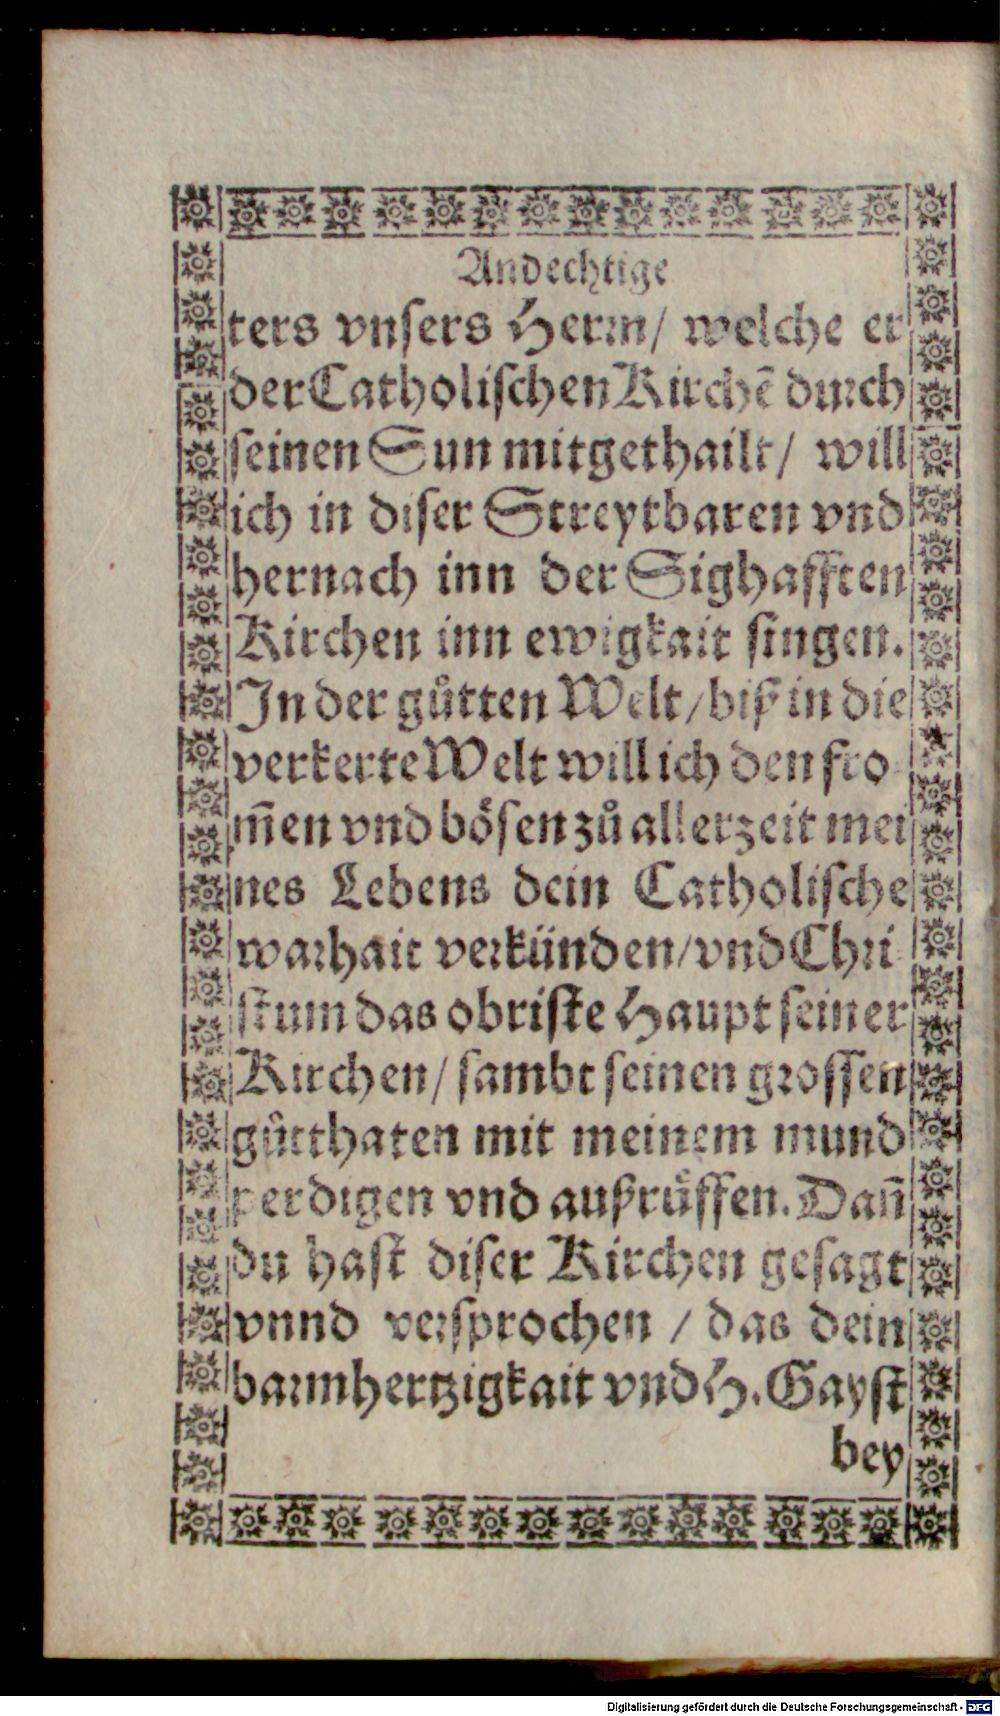 Andechtige
ters vnsers Herrn/ welche er
der Catholischen Kirchē durch
seinen Sun mitgethailt/ will
ich in diser Streytbaren vnd
hernach inn der Sighafften
Kirchen inn ewigkait singen.
In der gůtten Welt/biß in die
verkerte Welt will ich den fro
m̃en vnd bösen zů allerzeit mei
nes Lebens dein Catholische
warhait verkünden/vnd Chri
stum das obriste Haupt seiner
Kirchen/ sambt seinen grossen
gůtthaten mit meinem mund
perdigen vnd außrůffen. Dañ
du hast diser Kirchen gesagt
vnnd versprochen / das dein
barmhertzigkait vnd H. Gayst
bey
Digitalisierung gefördert durch die Deutsche Forschungsgemeinschaft - DFG